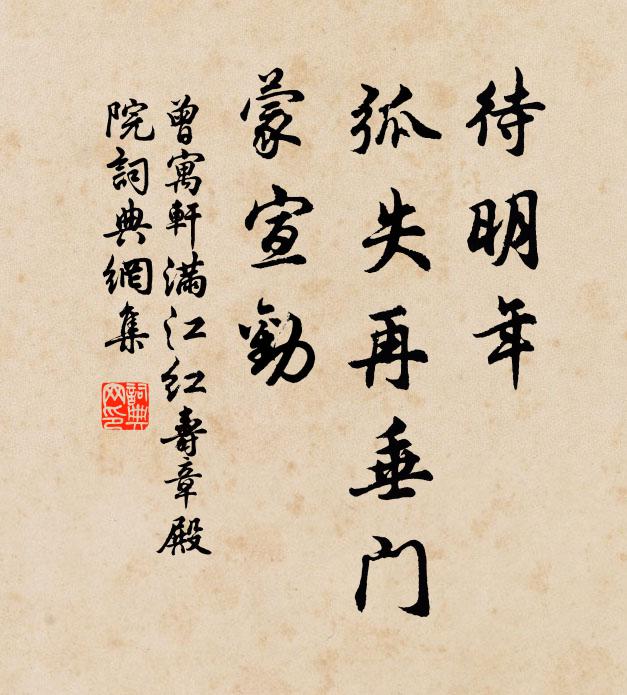 待明年
弧失再垂门
蒙宣劝
曾寓軒滿江红壽章殿
院詞典網集
詞典
网印